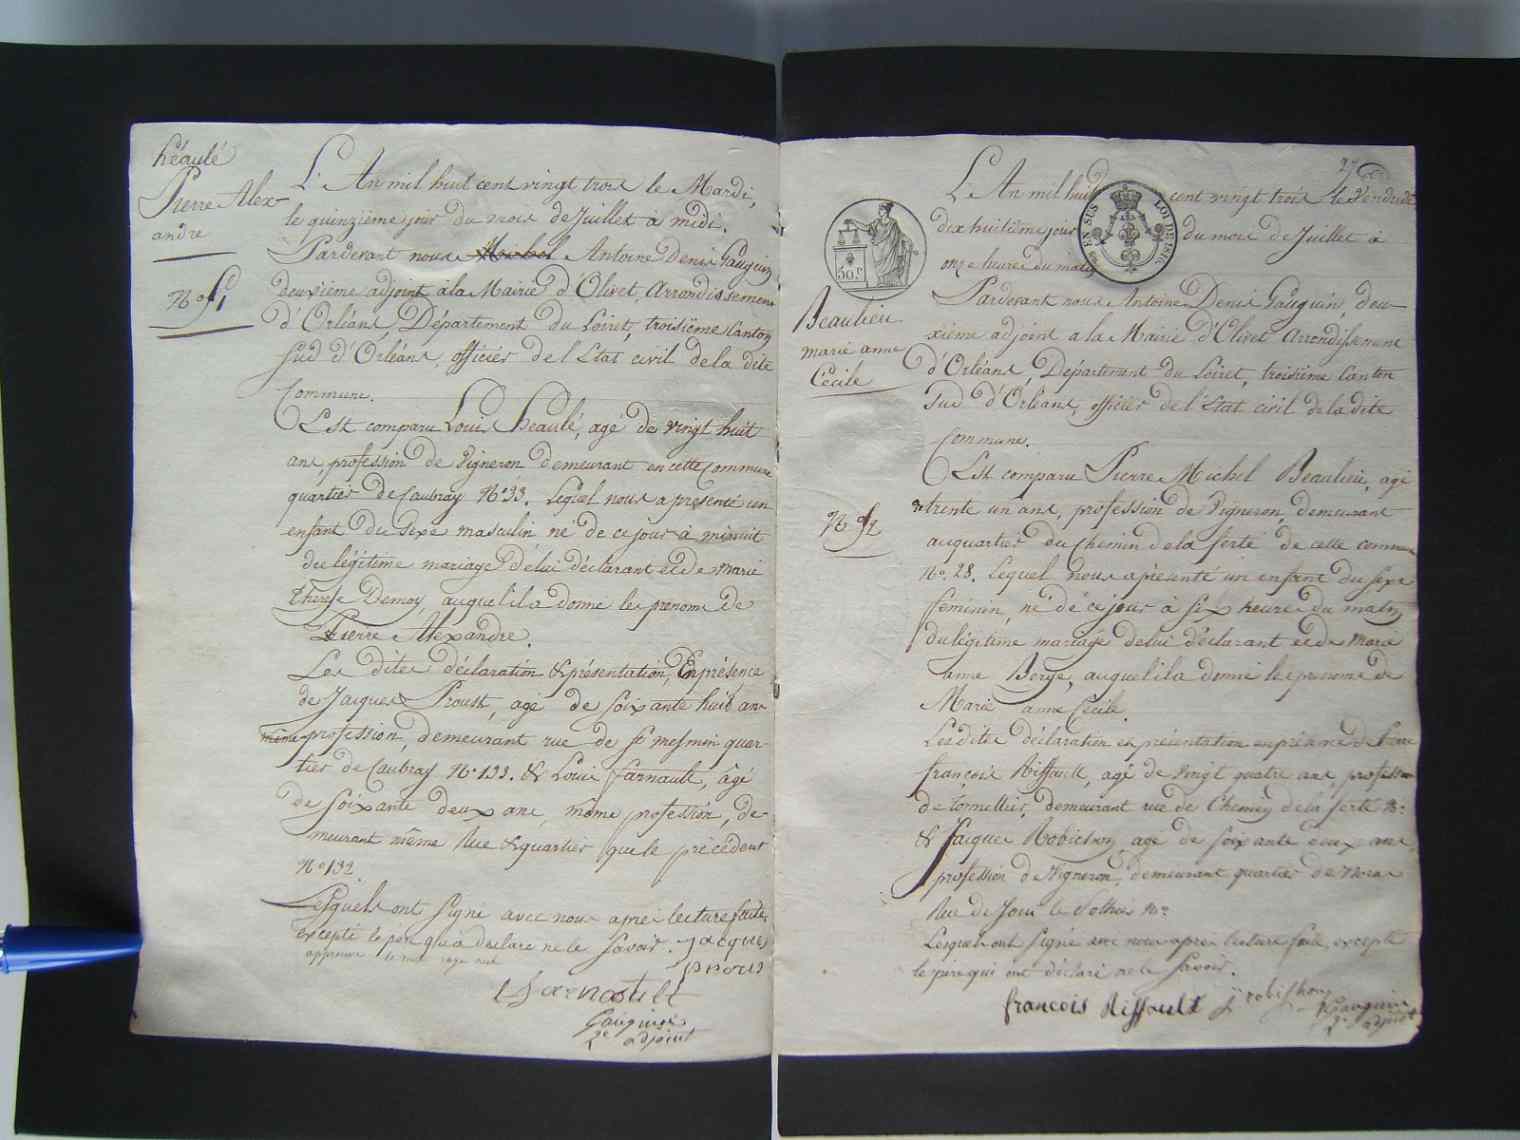 héaulé
Pierre Alex-
andre
N° 51
L'An mil huit cent vingt trois le Mardi,
le quinzième jour du mois de Juillet à midi.
Pardevant nous Michel Antoine Denis Gauguin
deuxième adjoint à la Mairie d'Olivet, Arrondissement
d'Orléans, Département du Loiret, troisième Canton
Sud d'Orléans, officier de l'Etat civil de la dite
Commune.
Est comparu Louis heaulé, agé de vingt huit
ans, profession de Vigneron demeurant en cette Commune
quartier de Caubray N° 33. Lequel nous a présenté un
enfant du Sexe masculin né de ce jour à minuit
du légitime mariage de lui déclarant et de Marie
Therese Demoy, auquel il a donné les prenoms de
Pierre Alexandre.
Les dites déclaration & présentation, En présence
de Jacques Proust, agé de soixante huit ans
même profession, demeurant rue de St mesmin quar-
tier de Caubray N° 133. & Louis farnault, âgé
de soixante deux ans, même profession, de-
meurant même Rue & quartier que le précédent
N° 132.
Lesquels ont Signé avec nous après lecture faite,
excepté le père qui a déclaré ne le savoir. jacques
approuvé le mot rayé nul
prous
L farnault
Gauguin
2e adjoint
27
L'An mil huit cent vingt trois le Vendredi
dix huitième jour du mois de Juillet à
onze heures du matin
EN SUS
LOI DE 1816
50 c
Beaulieu
marie anne
Cécile
N° 52
Pardevant nous Antoine Denis Gauguin, deu-
xième adjoint a la Mairie d'Olivet Arrondissement
d'Orléans, Département du Loiret, troisième Canton
Sud d'Orléans, officier de l'Etat civil de la dite
Commune.
Est comparu Pierre Michel Beaulieu, agé
de trente un ans, profession de Vigneron, demeurant
au quartier du Chemin de la ferté de cette commune
N° 28. Lequel nous a présenté un enfant du Sexe
féminin, né de ce jour à six heures du matin
du légitime mariage de lui déclarant et de Marie
anne Berge, auquel il a donné les prenoms de
Marie anne Cecile.
Les dites déclaration et présentation en présence de Pierre
françois Riffault, agé de vingt quatre ans, profession
de Tonnellier, demeurant rue de Chemin de la ferté N°
& Jacques Robichon agé de soixante deux ans
profession de Vigneron, demeurant quartier de
Rue de N°
Lesquels ont Signé avec nous après lecture faite, excepté
le père qui ont déclaré ne le Savoir.
francois Riffault j robichon Gauguin
2e adjoint